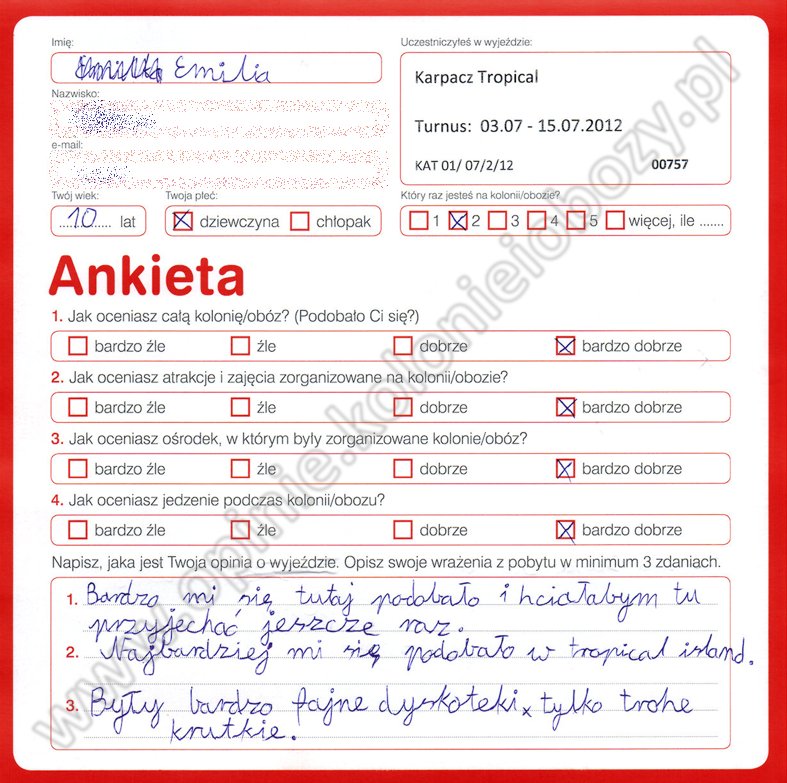 Imię:
Emilia
Nazwisko:
e-mail:
Twój wiek:
10 lat
Twoja płeć:
dziewczyna chłopak
Uczestniczyłeś w wyjeździe:
Karpacz Tropical
Turnus: 03.07 - 15.07.2012
KAT 01/ 07/2/12 00757
Który raz jesteś na kolonii/obozie?
1 2 3 4 5 więcej, ile .......
Ankieta
1. Jak oceniasz całą kolonię/obóz? (Podobało Ci się?)
bardzo źle źle dobrze bardzo dobrze
2. Jak oceniasz atrakcje i zajęcia zorganizowane na kolonii/obozie?
bardzo źle źle dobrze bardzo dobrze
3. Jak oceniasz ośrodek, w którym były zorganizowane kolonie/obóz?
bardzo źle źle dobrze bardzo dobrze
4. Jak oceniasz jedzenie podczas kolonii/obozu?
bardzo źle źle dobrze bardzo dobrze
Napisz, jaka jest Twoja opinia o wyjeździe. Opisz swoje wrażenia z pobytu w minimum 3 zdaniach.
1. Bardzo mi się tutaj podobało i hciałabym tu
przyjechać jeszcze raz.
2. Najbardziej mi się podobało w tropical island.
3. Były bardzo fajne dyskoteki, tylko trohe
krutkie.
www.opinie.kolonieiobozy.pl